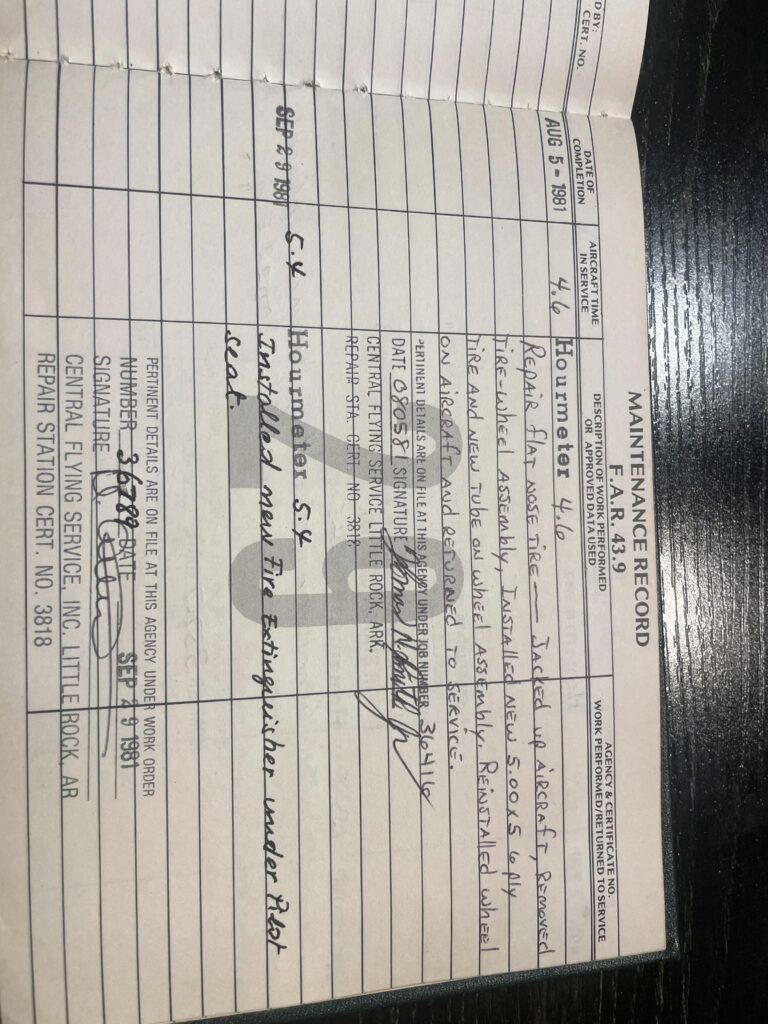 D BY:
CERT. NO.
MAINTENANCE RECORD
F.A.R. 43.9
DATE OF COMPLETION
AIRCRAFT TIME IN SERVICE
DESCRIPTION OF WORK PERFORMED OR APPROVED DATA USED
AGENCY & CERTIFICATE NO. WORK PERFORMED/RETURNED TO SERVICE
AUG 5 - 1981 4.6 Hourmeter 4.6
REPAIR FLAT NOSE TIRE — JACKED UP AIRCRAFT, REMOVED
TIRE-WHEEL ASSEMBLY, INSTALLED NEW 5.00X5 6 PLY
TIRE AND NEW TUBE ON WHEEL ASSEMBLY. REINSTALLED WHEEL
ON AIRCRAFT AND RETURNED TO SERVICE.
PERTINENT DETAILS ARE ON FILE AT THIS AGENCY UNDER JOB NUMBER 36416
DATE 080581 SIGNATURE
CENTRAL FLYING SERVICE LITTLE ROCK, ARK.
REPAIR STA. CERT NO 3818
SEP 29 1981 5.4 Hourmeter 5.4
Installed new Fire Extinguisher under Pilot
seat.
PERTINENT DETAILS ARE ON FILE AT THIS AGENCY UNDER WORK ORDER
NUMBER 36789 DATE SEP 29 1981
SIGNATURE
CENTRAL FLYING SERVICE, INC. LITTLE ROCK, AR
REPAIR STATION CERT. NO. 3818